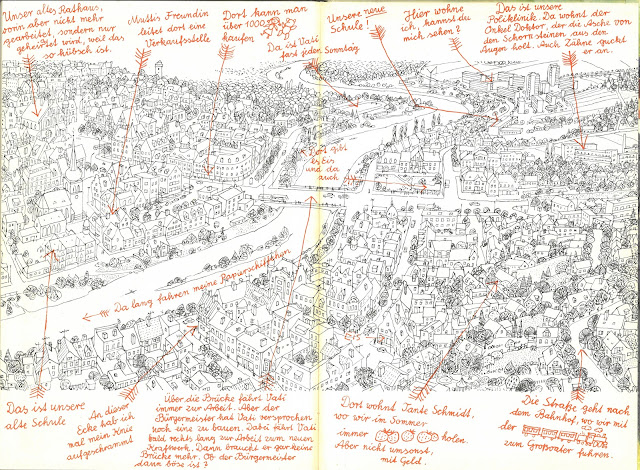 Unser altes Rathaus,
worin aber nicht mehr
gearbeitet, sondern nur
geheiratet wird, weil das
so hübsch ist.
Muttis Freundin
leitet dort eine
Verkaufsstelle
Dort kann man
über 1000
kaufen
Da ist Vati
fast jeden Sonntag
Unsere neue
Schule!
Hier wohne
ich, kannst du
mich sehen?
Das ist unsere
Poliklinik. Da wohnt der
Onkel Doktor, der die Asche von
den Schornsteinen aus den
Augen holt. Auch Zähne guckt
er an.
Dort gibt
es Eis
und da
auch
Da lang fahren meine Papierschiffchen
Das ist unsere
alte Schule
An dieser
Ecke hab ich
mal mein Knie
aufgeschrammt
Über die Brücke fährt Vati
immer zur Arbeit. Aber der
Bürgermeister hat Vati versprochen
noch eine zu bauen. Dabei fährt Vati
bald rechts lang zur Arbeit zum neuen
Kraftwerk. Dann braucht er gar keine
Brücke mehr. Ob der Bürgermeister
dann böse ist?
Dort wohnt Tante Schmidt,
wo wir im Sommer
immer holen.
Aber nicht umsonst,
mit Geld.
Die Straße geht nach
dem Bahnhof, wo wir mit
der
zum Großvater fuhren.